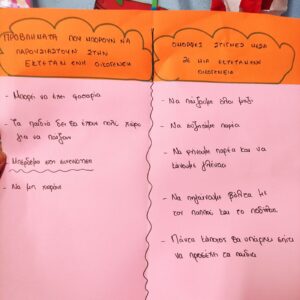 ΠΡΟΒΛΗΜΑΤΑ ΠΟΥ ΜΠΟΡΟΥΝ ΝΑ
ΠΑΡΟΥΣΙΑΣΤΟΥΝ ΣΤΗΝ
ΕΚΤΕΤΑΜΕΝΗ ΟΙΚΟΓΕΝΕΙΑ
- Μπορεί να έχει φασαρία
- Τα παιδιά δεν θα έχουν πολύ χώρο
για να παίξουν
- Μπέρδεμα στη
- Να μη χωράνε
ΟΜΟΡΦΕΣ ΣΤΙΓΜΕΣ ΜΕΣΑ
ΣΕ ΜΙΑ ΕΚΤΕΤΑΜΕΝΗ
ΟΙΚΟΓΕΝΕΙΑ
- Να παίζουμε όλοι μαζί
- Να συζητάμε παρέα
- Να τρώμε παρέα και να
κάνουμε γλέντια
- Να πηγαίνουμε βόλτα με
τον παππού και το
- Πάντα κάποιος θα υπάρχει σπίτι
να προσέχει τα παιδιά